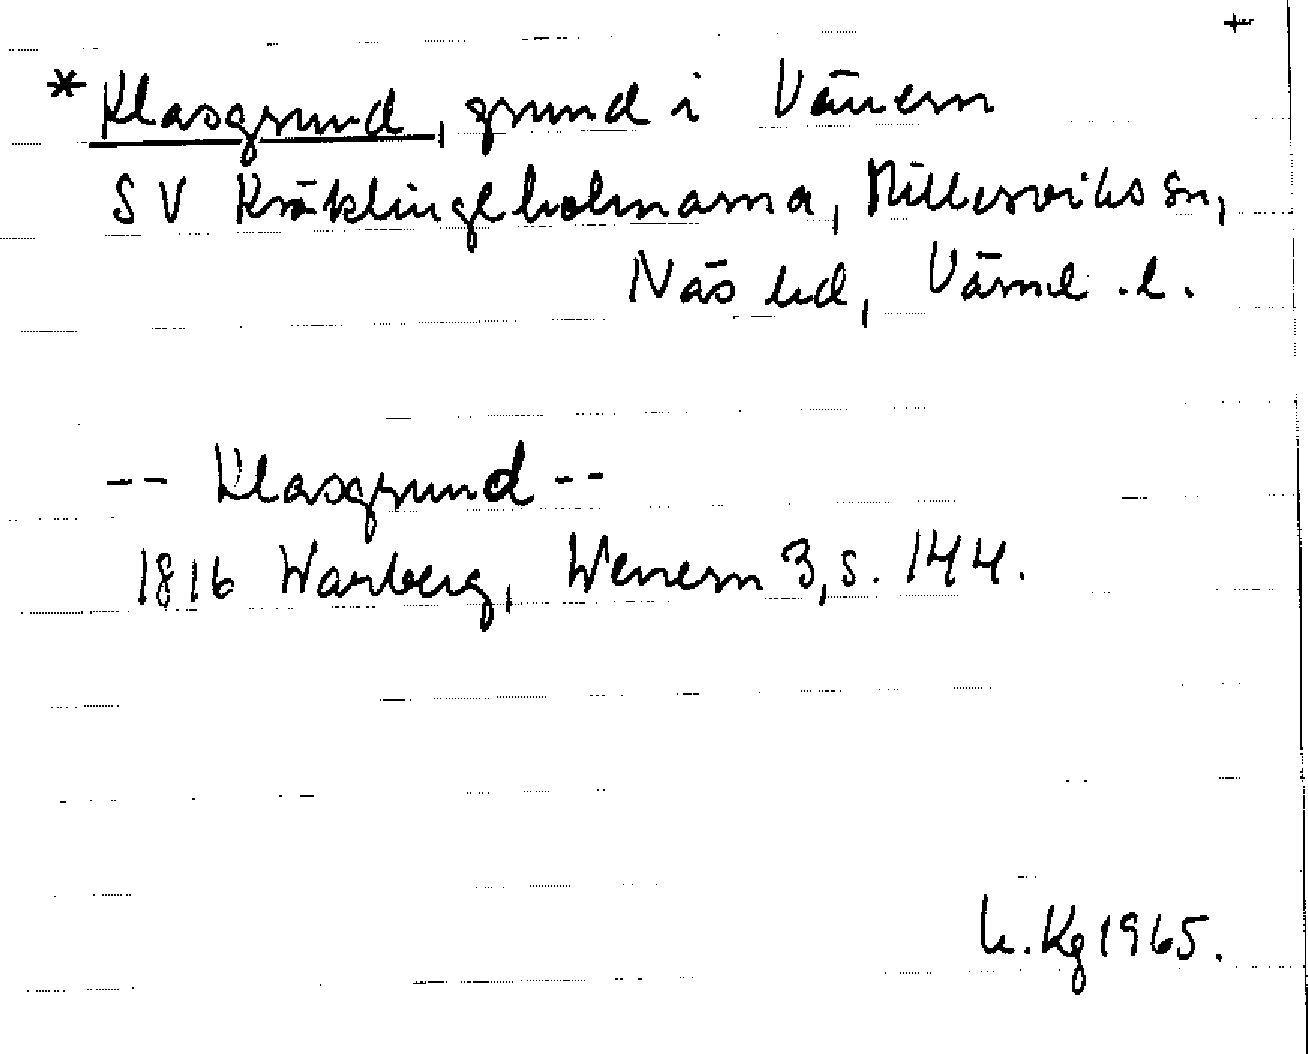 +
* Klasgrund, grund i Vänern
SV Kräklingeholmarna, Millesviks sn,
Näs hd, Värml. l.
-- Klasgrund --
1816 Warberg, Wenern 3, s. 144.
h. Kg 1965.